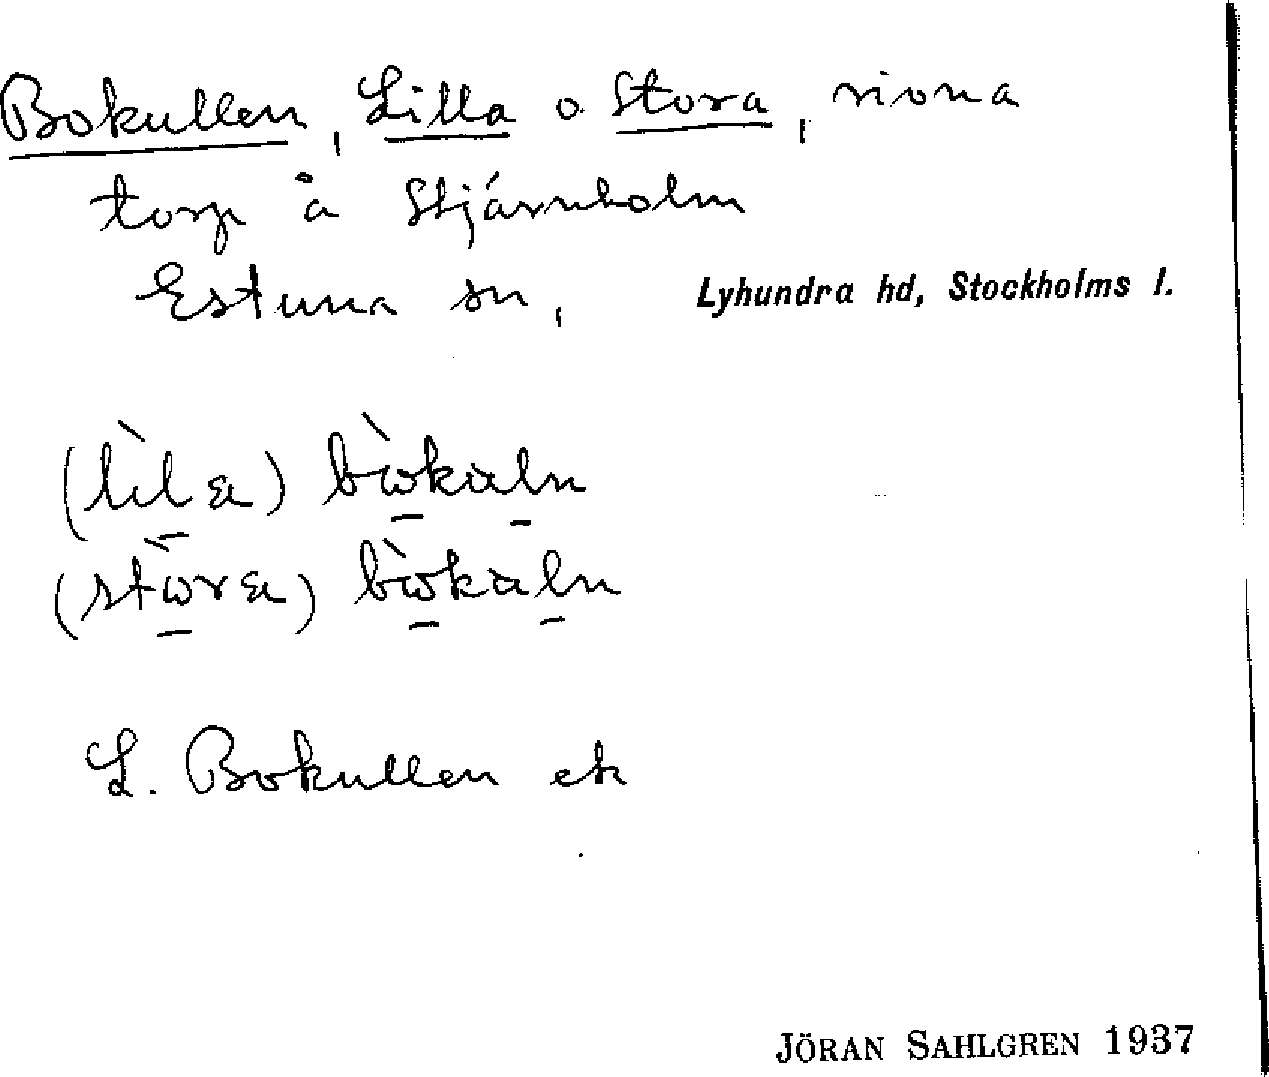 Bokullen, Lilla o Stora, rivna
torp å Stjärnholm
Estuna sn, Lyhundra hd, Stockholms l.
(lìla) bòkuln
(stòra) bòkuln
L. Bokullen ek
JÖRAN SAHLGREN 1937